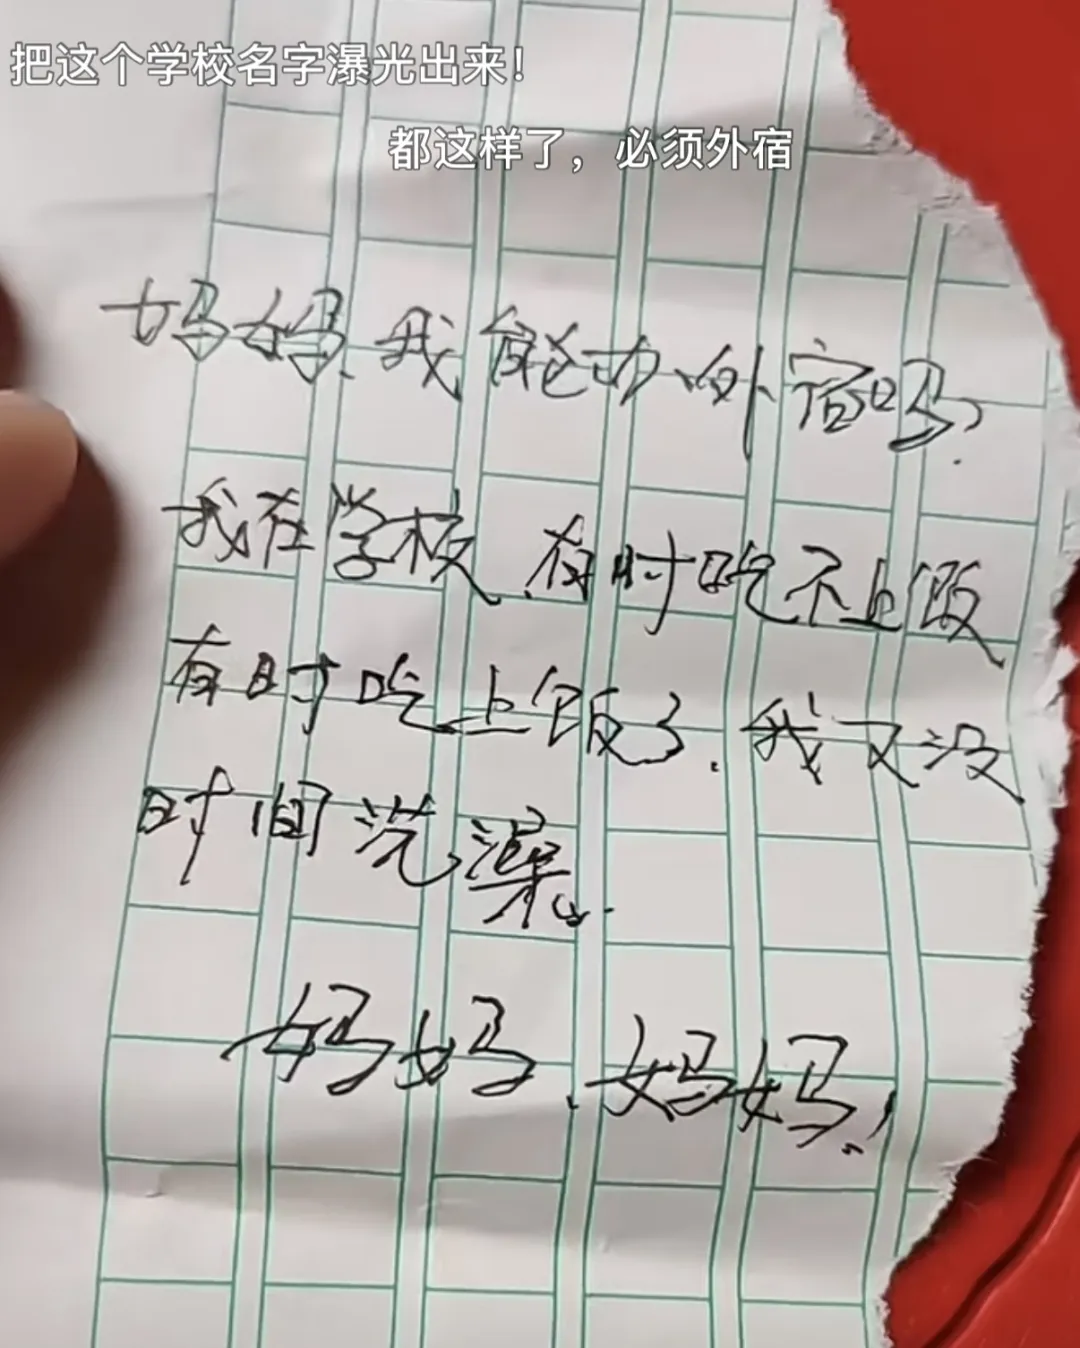 把这个学校名字瀑光出来!
都这样了，必须外宿
妈妈、我能办外宿吗?
我在学校、有时吃不上饭
有时吃上饭了、我又没
时间洗澡。
妈妈、妈妈!